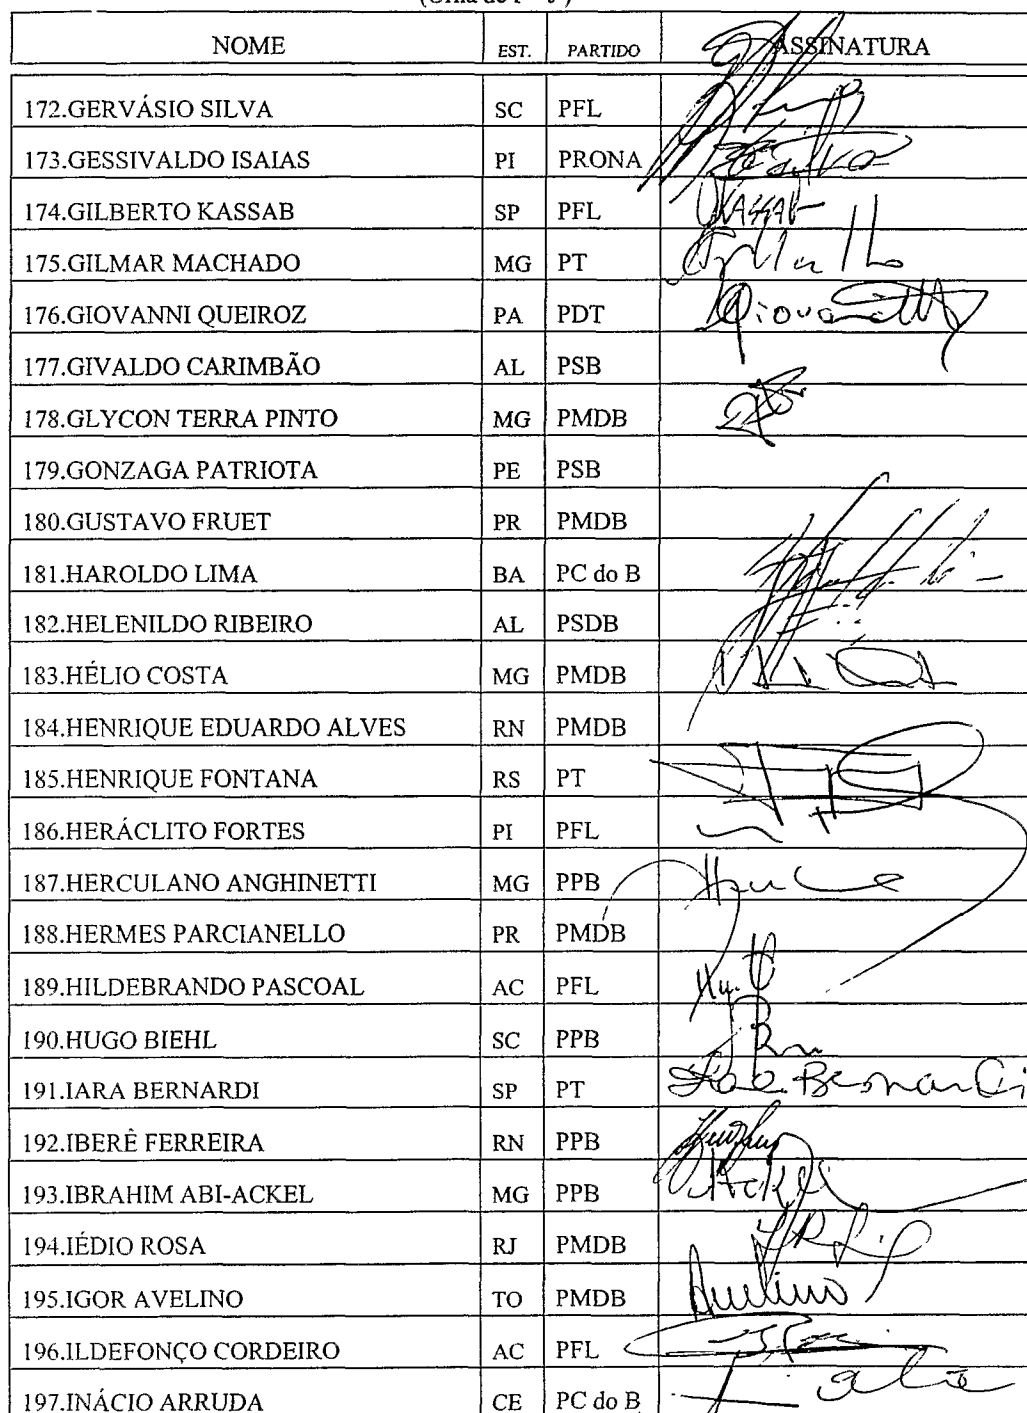 NOME EST. PARTIDO ASSINATURA
172.GERVÁSIO SILVA SC PFL
173.GESSIVALDO ISAIAS PI PRONA
174.GILBERTO KASSAB SP PFL Kassab
175.GILMAR MACHADO MG PT
176.GIOVANNI QUEIROZ PA PDT
177.GIVALDO CARIMBÃO AL PSB
178.GLYCON TERRA PINTO MG PMDB
179.GONZAGA PATRIOTA PE PSB
180.GUSTAVO FRUET PR PMDB
181.HAROLDO LIMA BA PC do B
182.HELENILDO RIBEIRO AL PSDB
183.HÉLIO COSTA MG PMDB
184.HENRIQUE EDUARDO ALVES RN PMDB
185.HENRIQUE FONTANA RS PT
186.HERÁCLITO FORTES PI PFL
187.HERCULANO ANGHINETTI MG PPB
188.HERMES PARCIANELLO PR PMDB
189.HILDEBRANDO PASCOAL AC PFL
190.HUGO BIEHL SC PPB
191.IARA BERNARDI SP PT Bernardi
192.IBERÊ FERREIRA RN PPB
193.IBRAHIM ABI-ACKEL MG PPB Ackel
194.IÉDIO ROSA RJ PMDB
195.IGOR AVELINO TO PMDB Avelino
196.ILDEFONÇO CORDEIRO AC PFL
197.INÁCIO ARRUDA CE PC do B